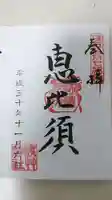 奉拝
恵比須
平成三十年十一月六日